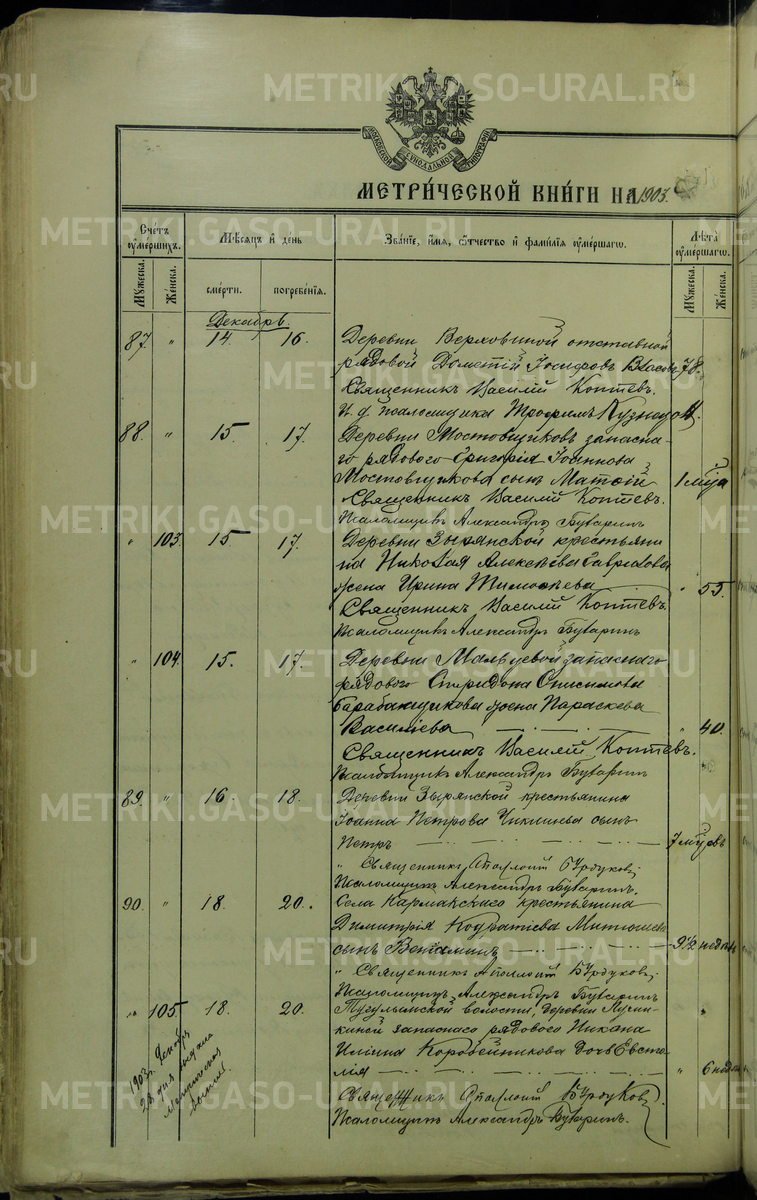 METRIKI.GASO-URAL.RU
МЕТРИ́ЧЕСКОЙ КНИ́ГИ НА 1903.
Сче́тъ ᲂу҆ме́ршихъ.
Мѣ́сяцъ и҆ де́нь
Зва́нїе, и҆́мя, ѻ҆́тчество и҆ фами́лїя ᲂу҆ме́ршагѡ.
Лѣ́та ᲂу҆ме́ршагѡ.
Му́жеска.
Же́нска.
сме́рти.
погребе́нїя.
Му́жеска.
Же́нска.
Декабрь.
87. " 14 16 Деревни Верховиной отставной
рядовой Дометій Іосифовъ Власовъ 78.
Священникъ Василій Коптевъ.
И. д. псаломщика Трофимъ Кузнецовъ.
88. " 15. 17. Деревни Мостовщиковъ запасна-
го рядового Григорія Іоаннова
Мостовщикова сынъ Матѳій 1 м-ца
Священникъ Василій Коптевъ.
Псаломщикъ Александръ Бутаринъ
" 103. 15 17. Деревни Зырянской крестьяни
на Николая Алексѣева Гаврилова
жена Ирина Тимоѳеева " 55.
Священникъ Василій Коптевъ.
Псаломщикъ Александръ Бутаринъ
" 104. 15. 17 Деревни Мальцевой запаснаго
рядового Спиридона Онисимова
Барабанщикова жена Параскева
Васильева " 40.
Священникъ Василій Коптевъ.
Псаломщикъ Александръ Бутаринъ
89. " 16. 18. Деревни Зырянской крестьянина
Іоанна Петрова Чиклиева сынъ
Петръ 7 м-цевъ
" Священникъ Аполлонъ Бурдуковъ;
Псаломщикъ Александръ Бутаринъ.
90. " 18. 20. Села Кармакскаго крестьянина
Димитрія Кодратіева
сынъ Веніаминъ 9½ недѣль
" Священникъ Аполлонъ Бурдуковъ;
Псаломщикъ Александръ Бутаринъ
" 105 18. 20. Тугулымской волости, деревни Лучин-
киной запаснаго рядового Никана
Коробейникова дочь Евста-
лія " 6 недѣль
Священникъ Аполлонъ Бурдуковъ
Псаломщикъ Александръ Бутаринъ.
1903 г. Декабря
28 дня выдана
Метрическая